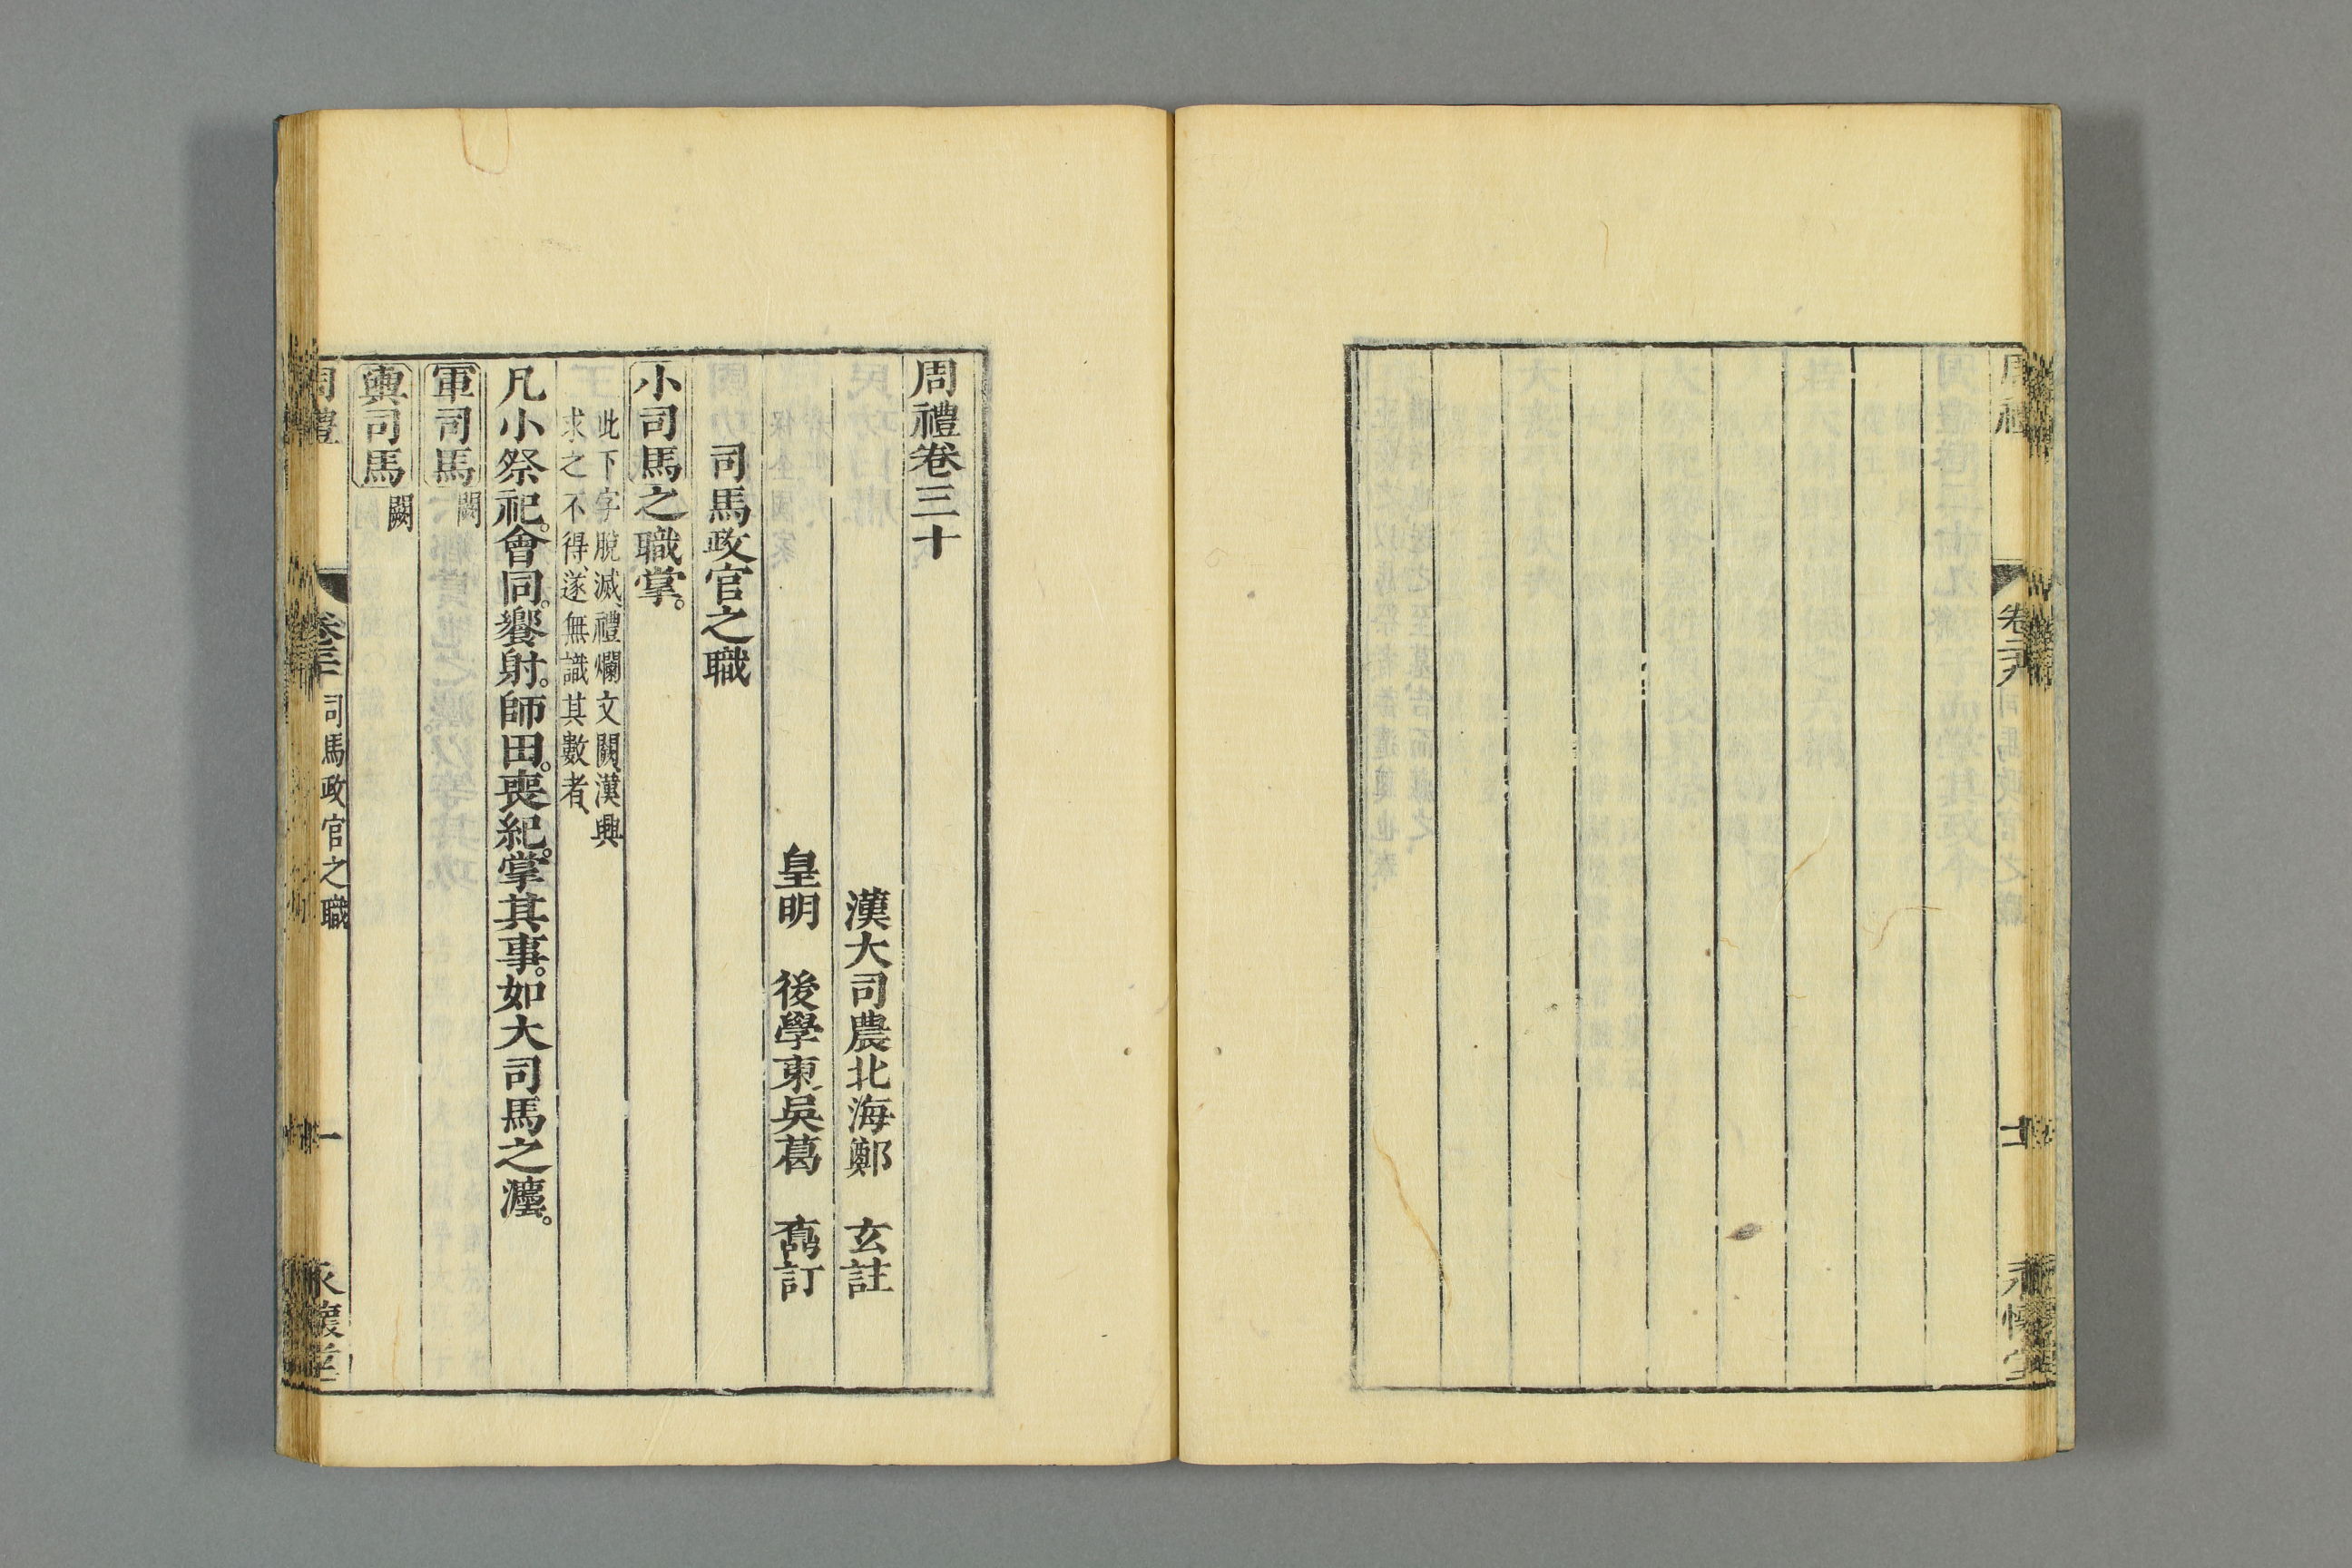 周禮
卷二十九
司馬政官之職
十
永懷堂
周禮卷三十
漢大司農北海鄭　玄註
皇明　後學東吳葛　鼒訂
司馬政官之職
小司馬之職掌。
此下字脫滅、禮爛文闕、漢興
求之不得、遂無識其數者、
凡小祭祀。會同。饗射。師田。喪紀。掌其事。如大司馬之灋。
軍司馬 闕
輿司馬 闕
周禮
卷三十
司馬政官之職
一
永懷堂